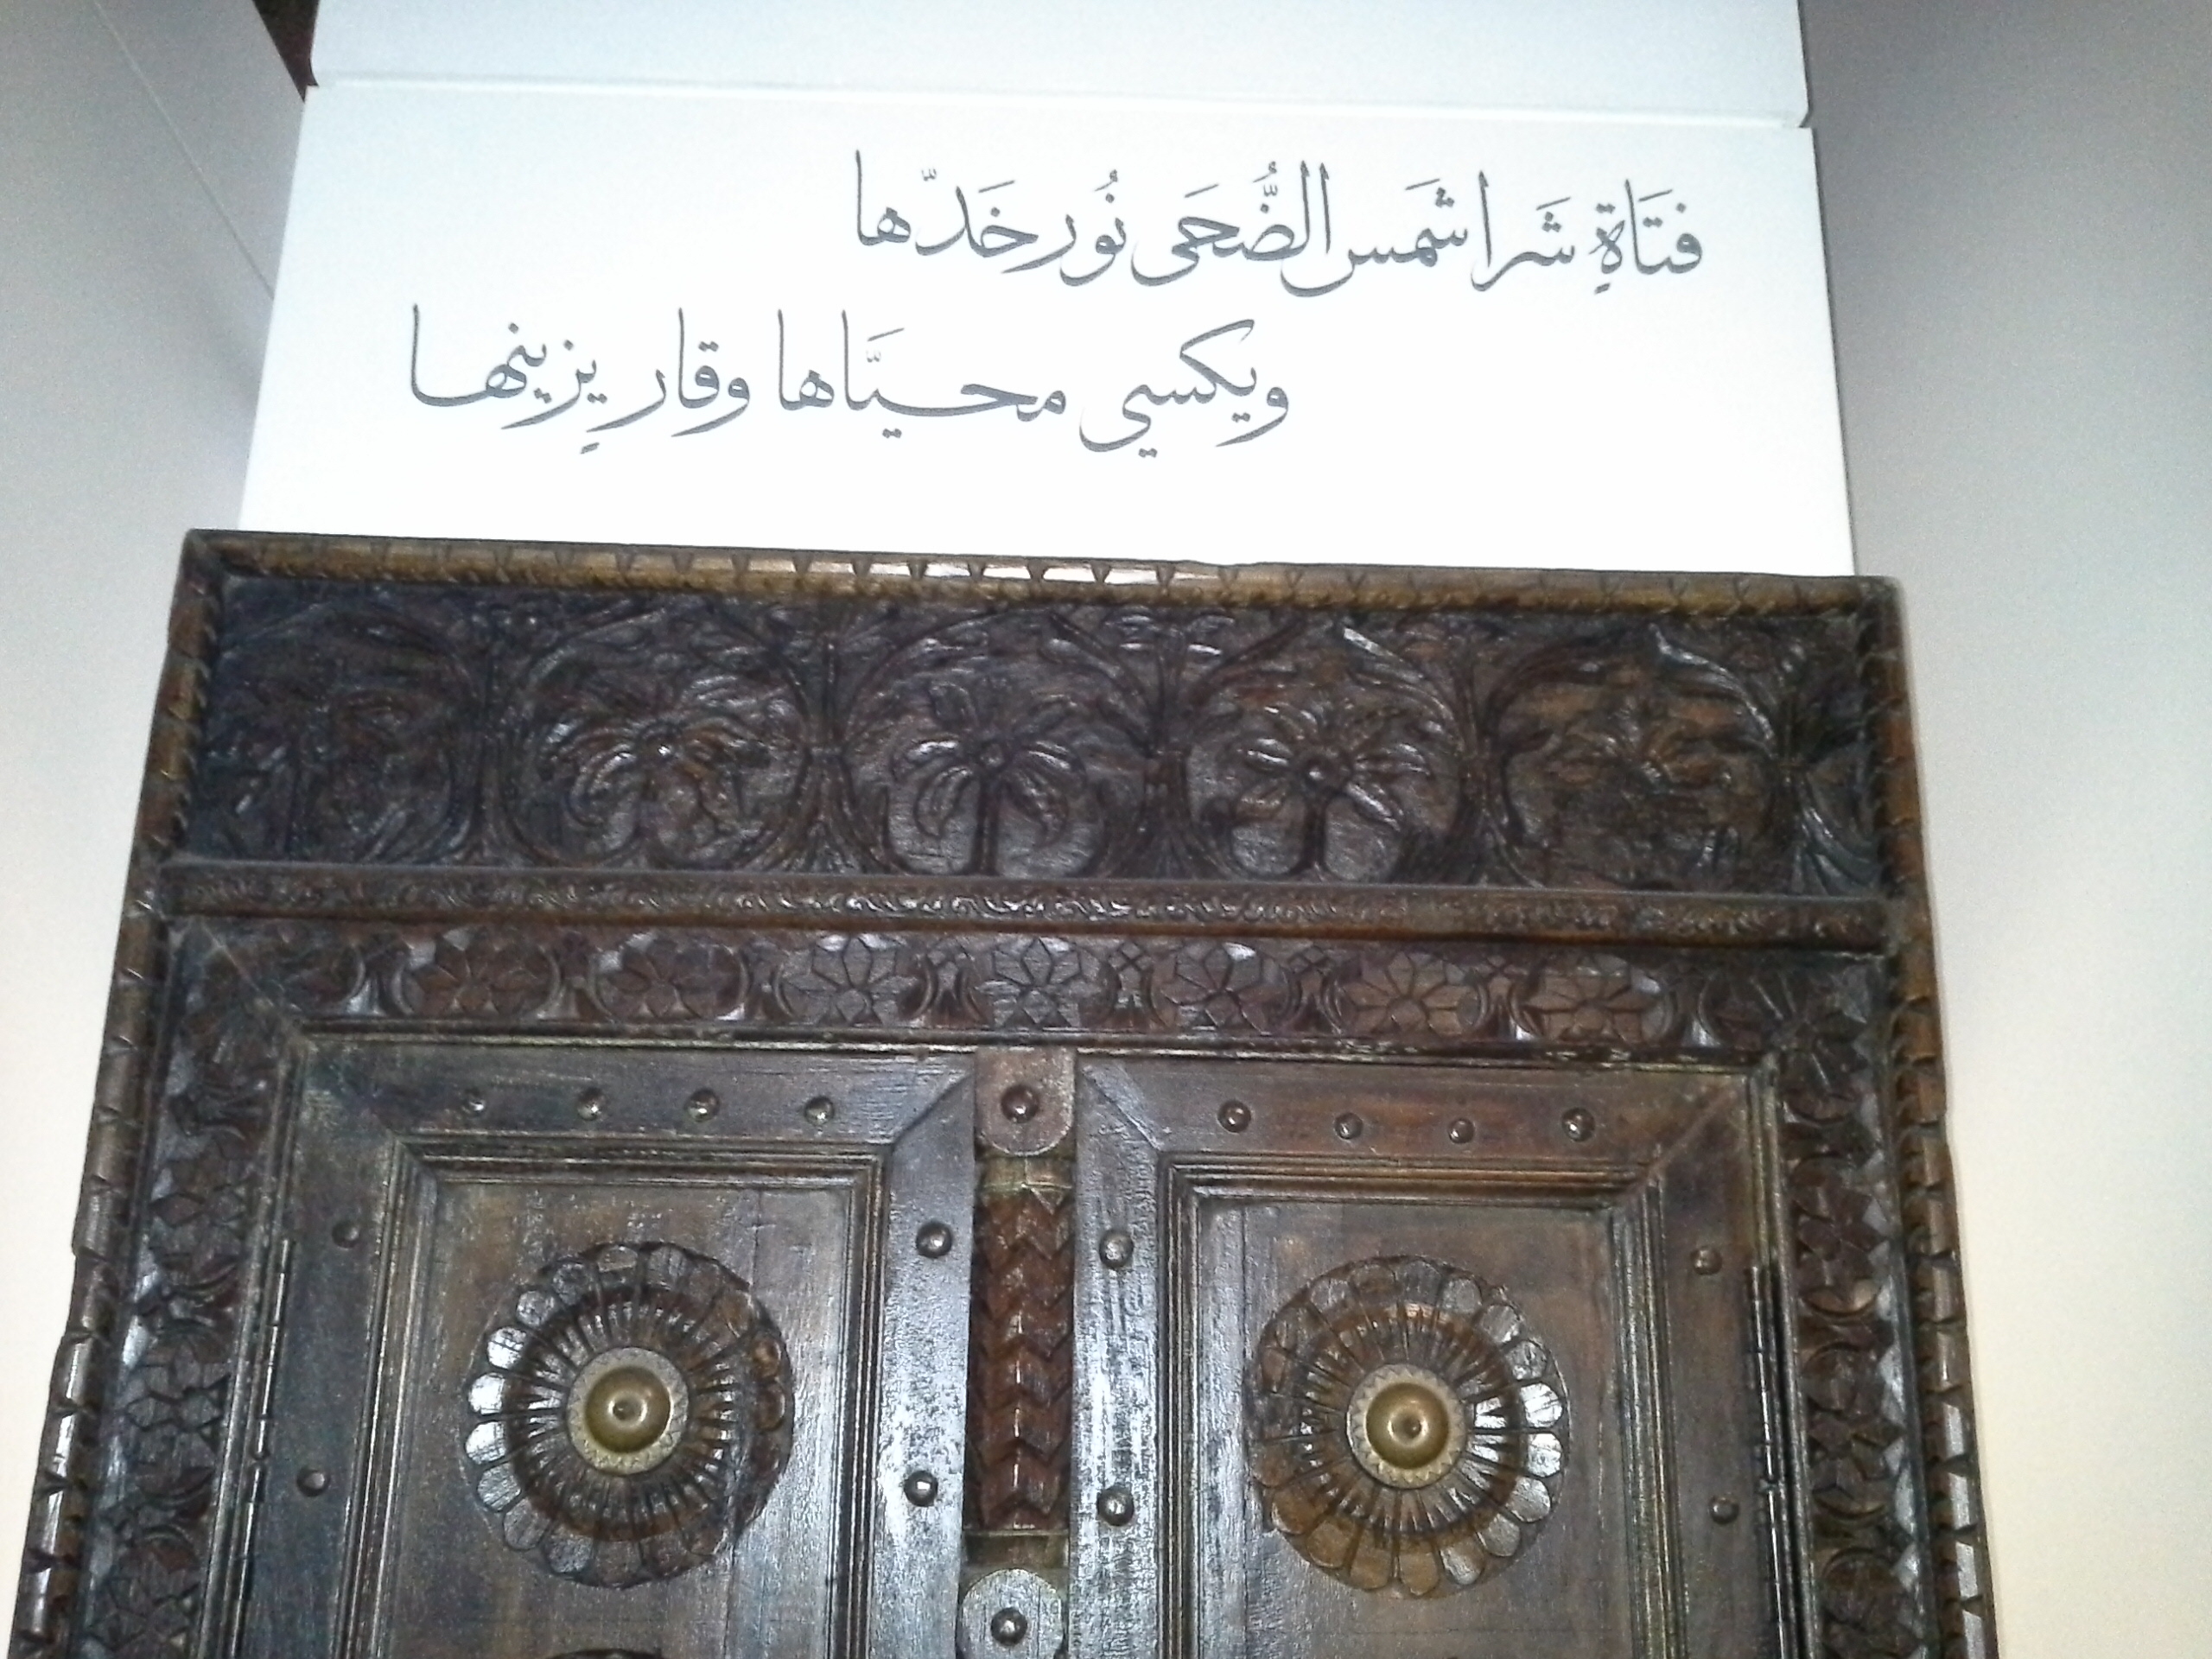 فتَاةٍ شَرا شَمس الضُّحَى نُور خَدّها
ويكسي محيَّاها وقارٍ يزينها